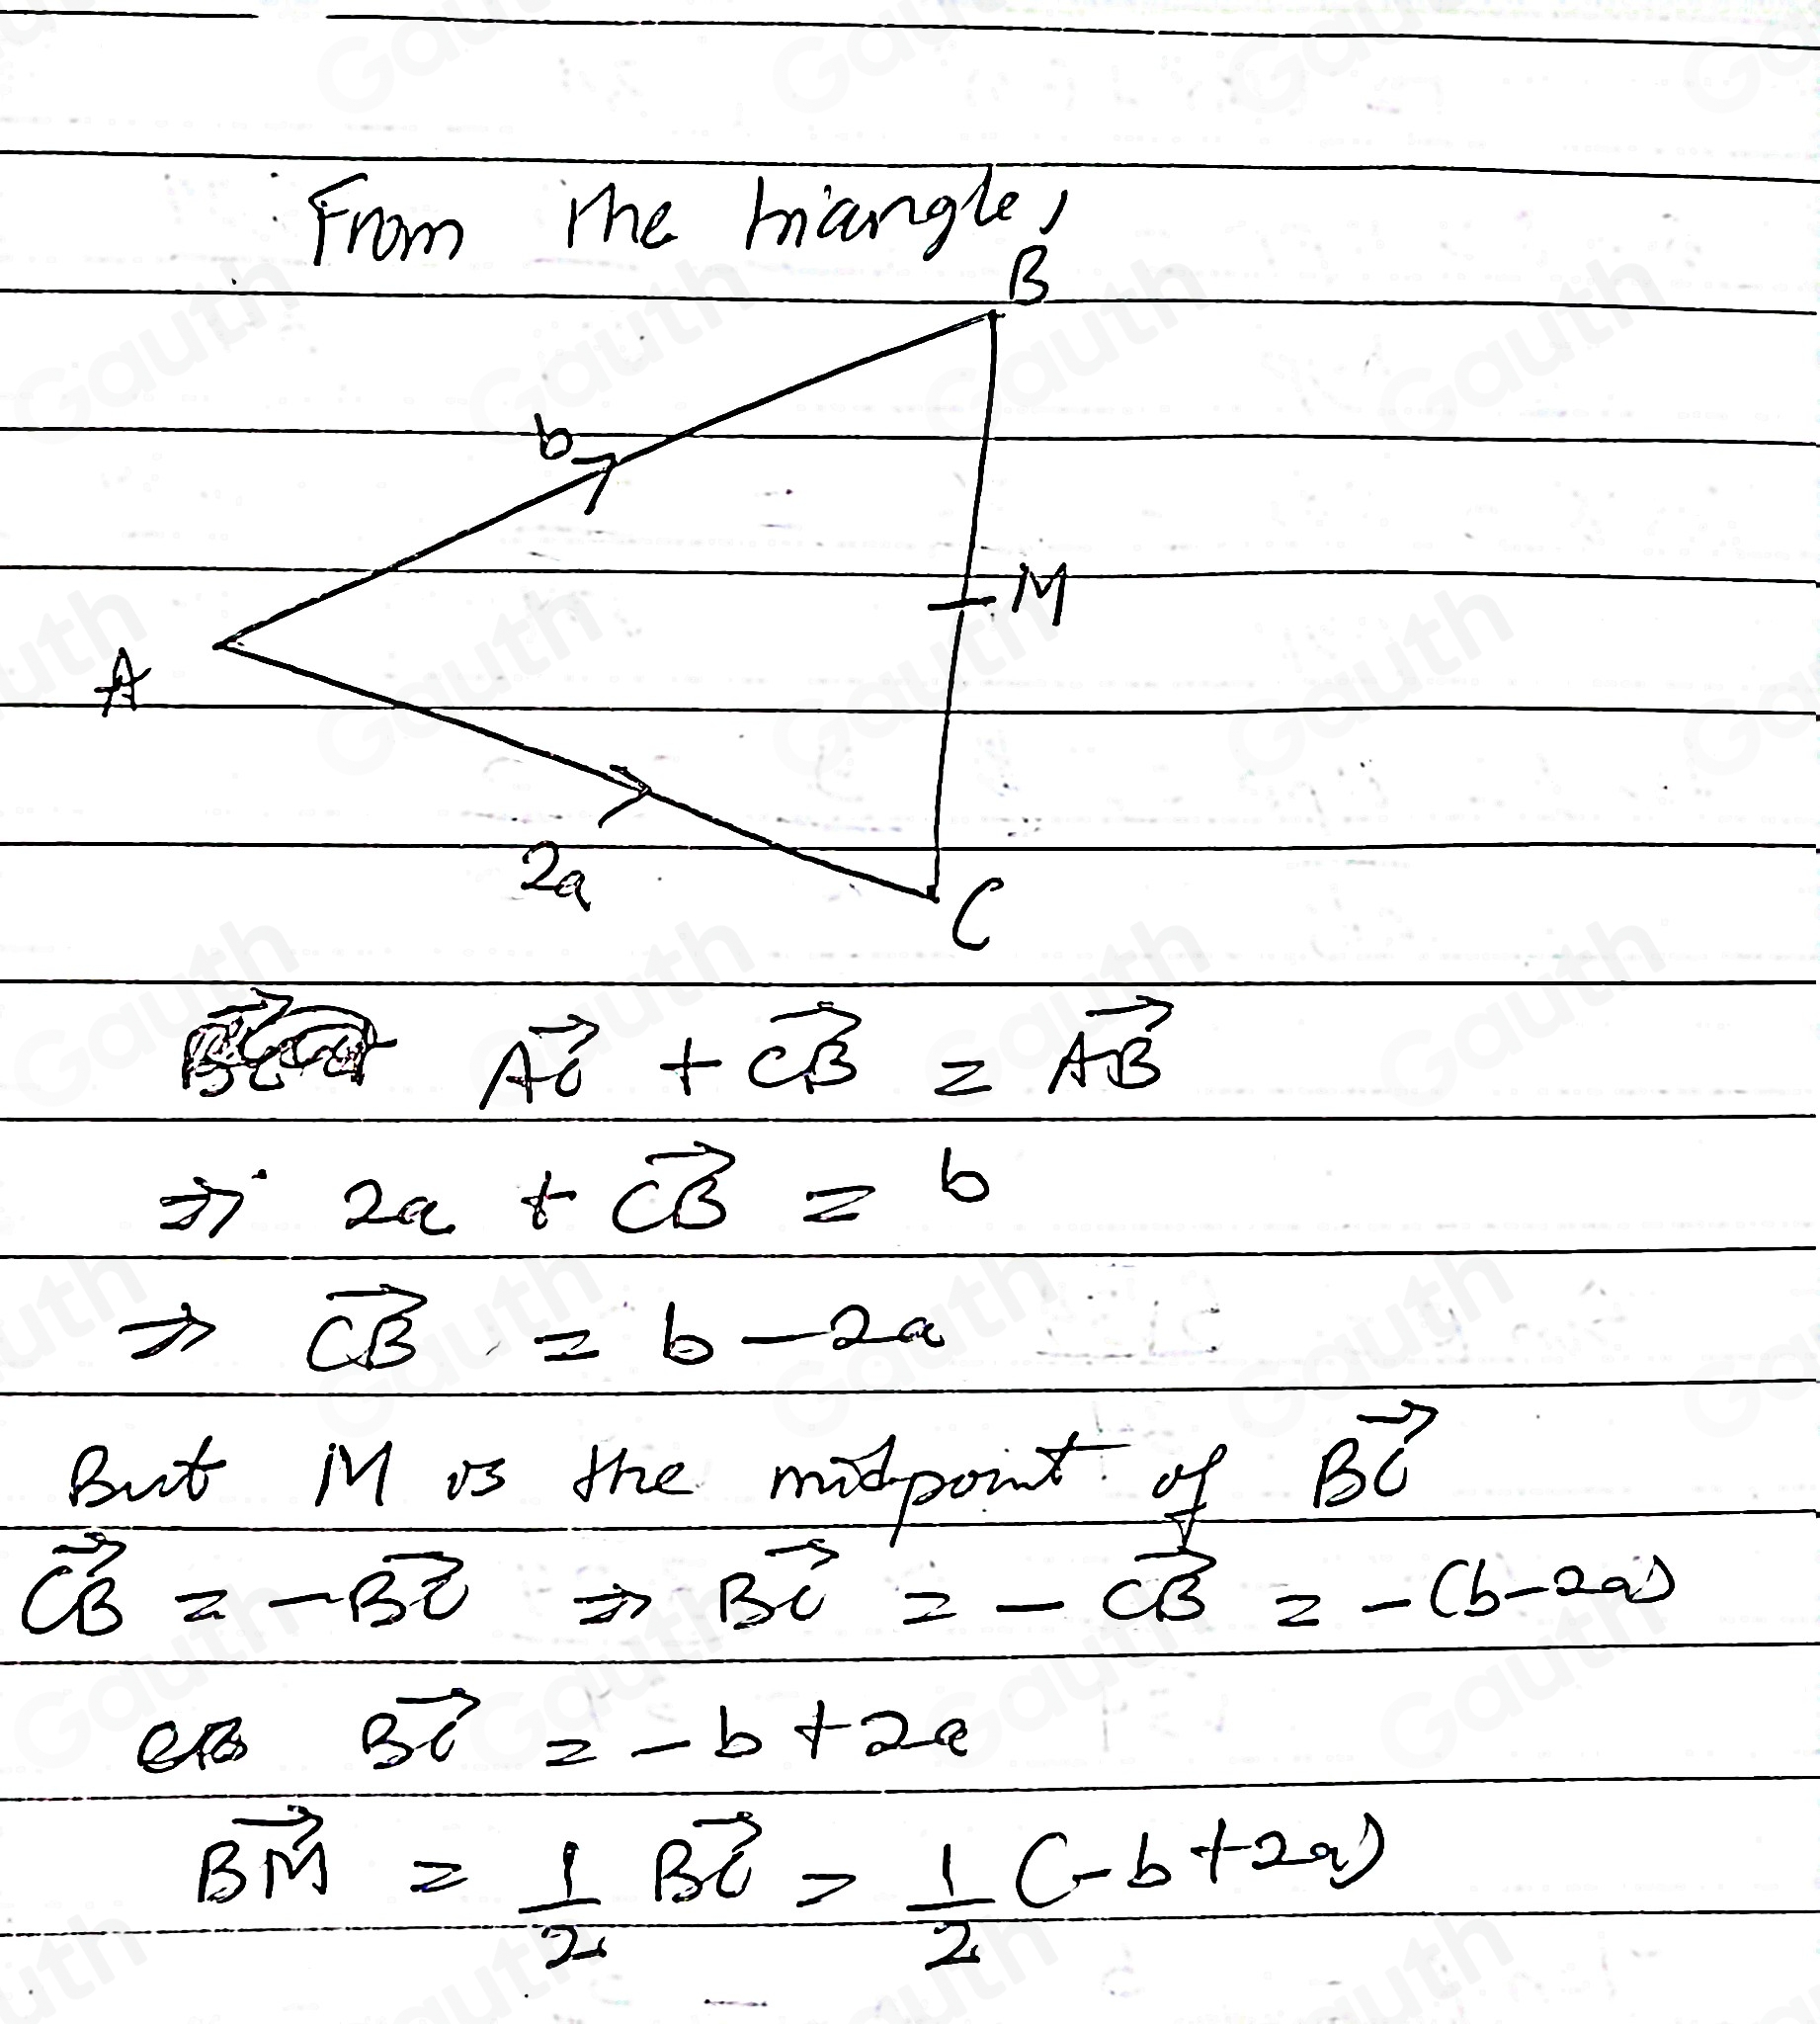 From the triangle,
B
b
M
A
2a
C
AC + CB = AB
⇒ 2a + CB = b
⇒ CB = b - 2a
But M is the midpoint of BC
CB = -BC ⇒ BC = - CB = -(b-2a)
BC = -b + 2a
BM = 1/2 BC = 1/2 (-b + 2a)
Gauth